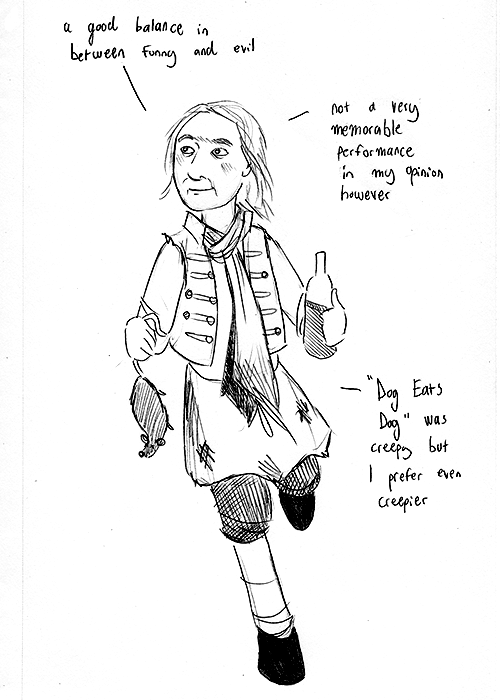 a good balance in
between funny and evil
not a very
memorable
performance
in my opinion
however
"Dog Eats
Dog" was
creepy but
I prefer even
creepier